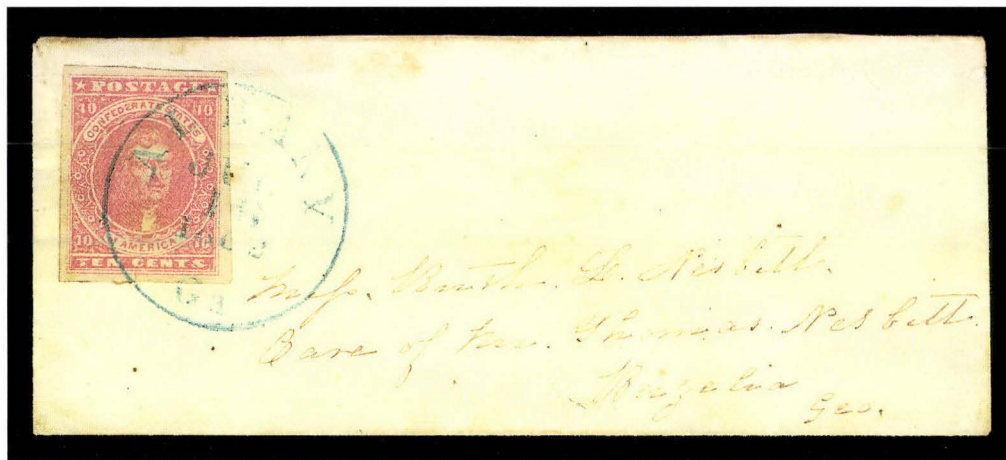 ★ POSTAGE
10 10
CONFEDERATE STATES
AMERICA
10 10
TEN CENTS.
ALBANY
GEO
Miss. L. Nesbitt.
Care of Mr. Thomas. Nesbitt.
Geo.